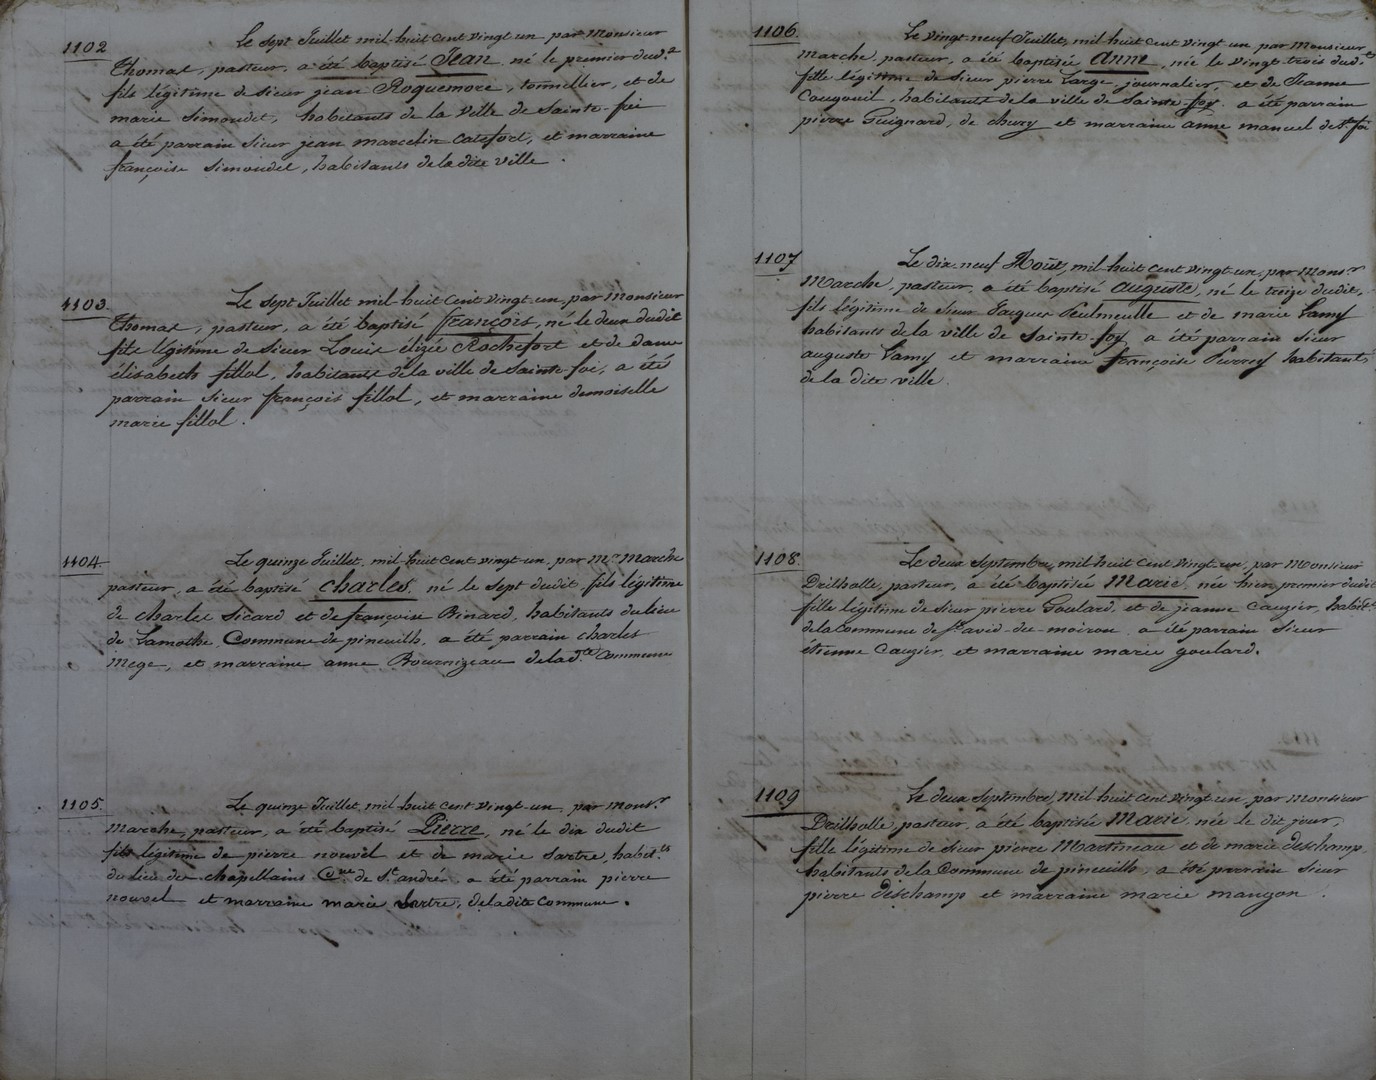 1102
Le sept Juillet mil-huit cent vingt un par monsieur
Thomas, pasteur, a été baptisé Jean né le premier dud.t
fils légitime de sieur jean Roquemore, tonnellier, et de
marie Simondet, habitants de la ville de Sainte-foi
a été parrain sieur jean marcelin catefort, et marraine
françoise Simondet, habitants de la dite ville.
1103.
Le sept Juillet mil-huit cent vingt-un, par monsieur
Thomas, pasteur, a été baptisé françois, né le deux dudit
fils légitime de sieur Louis élizée Rochefort et de dame
élisabeth fillol, habitants de la ville de Sainte-foi, a été
parrain sieur françois fillol, et marraine demoiselle
marie fillol.
1104
Le quinze Juillet, mil-huit cent vingt-un par m.r marche
pasteur, a été baptisé charles, né le sept dudit, fils légitime
de charles Sicard et de françoise Binard, habitants du lieu
de Lamothe, Commune de pineuilh, a été parrain charles
mege, et marraine anne Bournizeau de la d.te commune
1105.
Le quinze Juillet mil-huit cent vingt-un, par mons.r
marche, pasteur, a été baptisé Pierre, né le dix dudit
fils légitime de pierre nouvel et de marie Sartre, habit.ts
du lieu des chapellains C.ne de S.t andré, a été parrain pierre
nouvel et marraine marie Sartre, de la dite commune.
1106.
Le vingt-neuf Juillet, mil-huit cent vingt un par monsieur
marche, pasteur, a été baptisée Anne, née le vingt trois dud.t
fille légitime de sieur pierre Large, journalier, et de Jeanne
habitants de la ville de Sainte-foy. a été parrain
pierre Guignard, de et marraine anne manuel de S.te foi
1107
Le dix neuf Août, mil-huit cent vingt-un, par mons.r
Marche, pasteur, a été baptisé auguste, né le treize dudit,
fils légitime de sieur Jacques et de marie Lamy
habitants de la ville de Sainte-foy, a été parrain sieur
auguste Lamy et marraine françoise habitants
de la dite ville.
1108.
Le deux Septembre, mil-huit cent vingt-un, par monsieur
Drilholle, pasteur, a été baptisée Marie, née hier, premier dudit
fille légitime de sieur pierre Goulard, et de jeanne Cauzier, habit.ts
de la commune de S.t avid-du-moiron a été parrain sieur
etienne Cauzier, et marraine marie goulard.
1109
Le deux Septembre, mil huit cent vingt-un, par monsieur
Drilholle, pasteur, a été baptisée Marie née le dit jour,
fille légitime de sieur pierre Martineau et de marie deschamp,
habitants de la Commune de pineuilh, a été parrain sieur
pierre deschamp et marraine marie mangon.